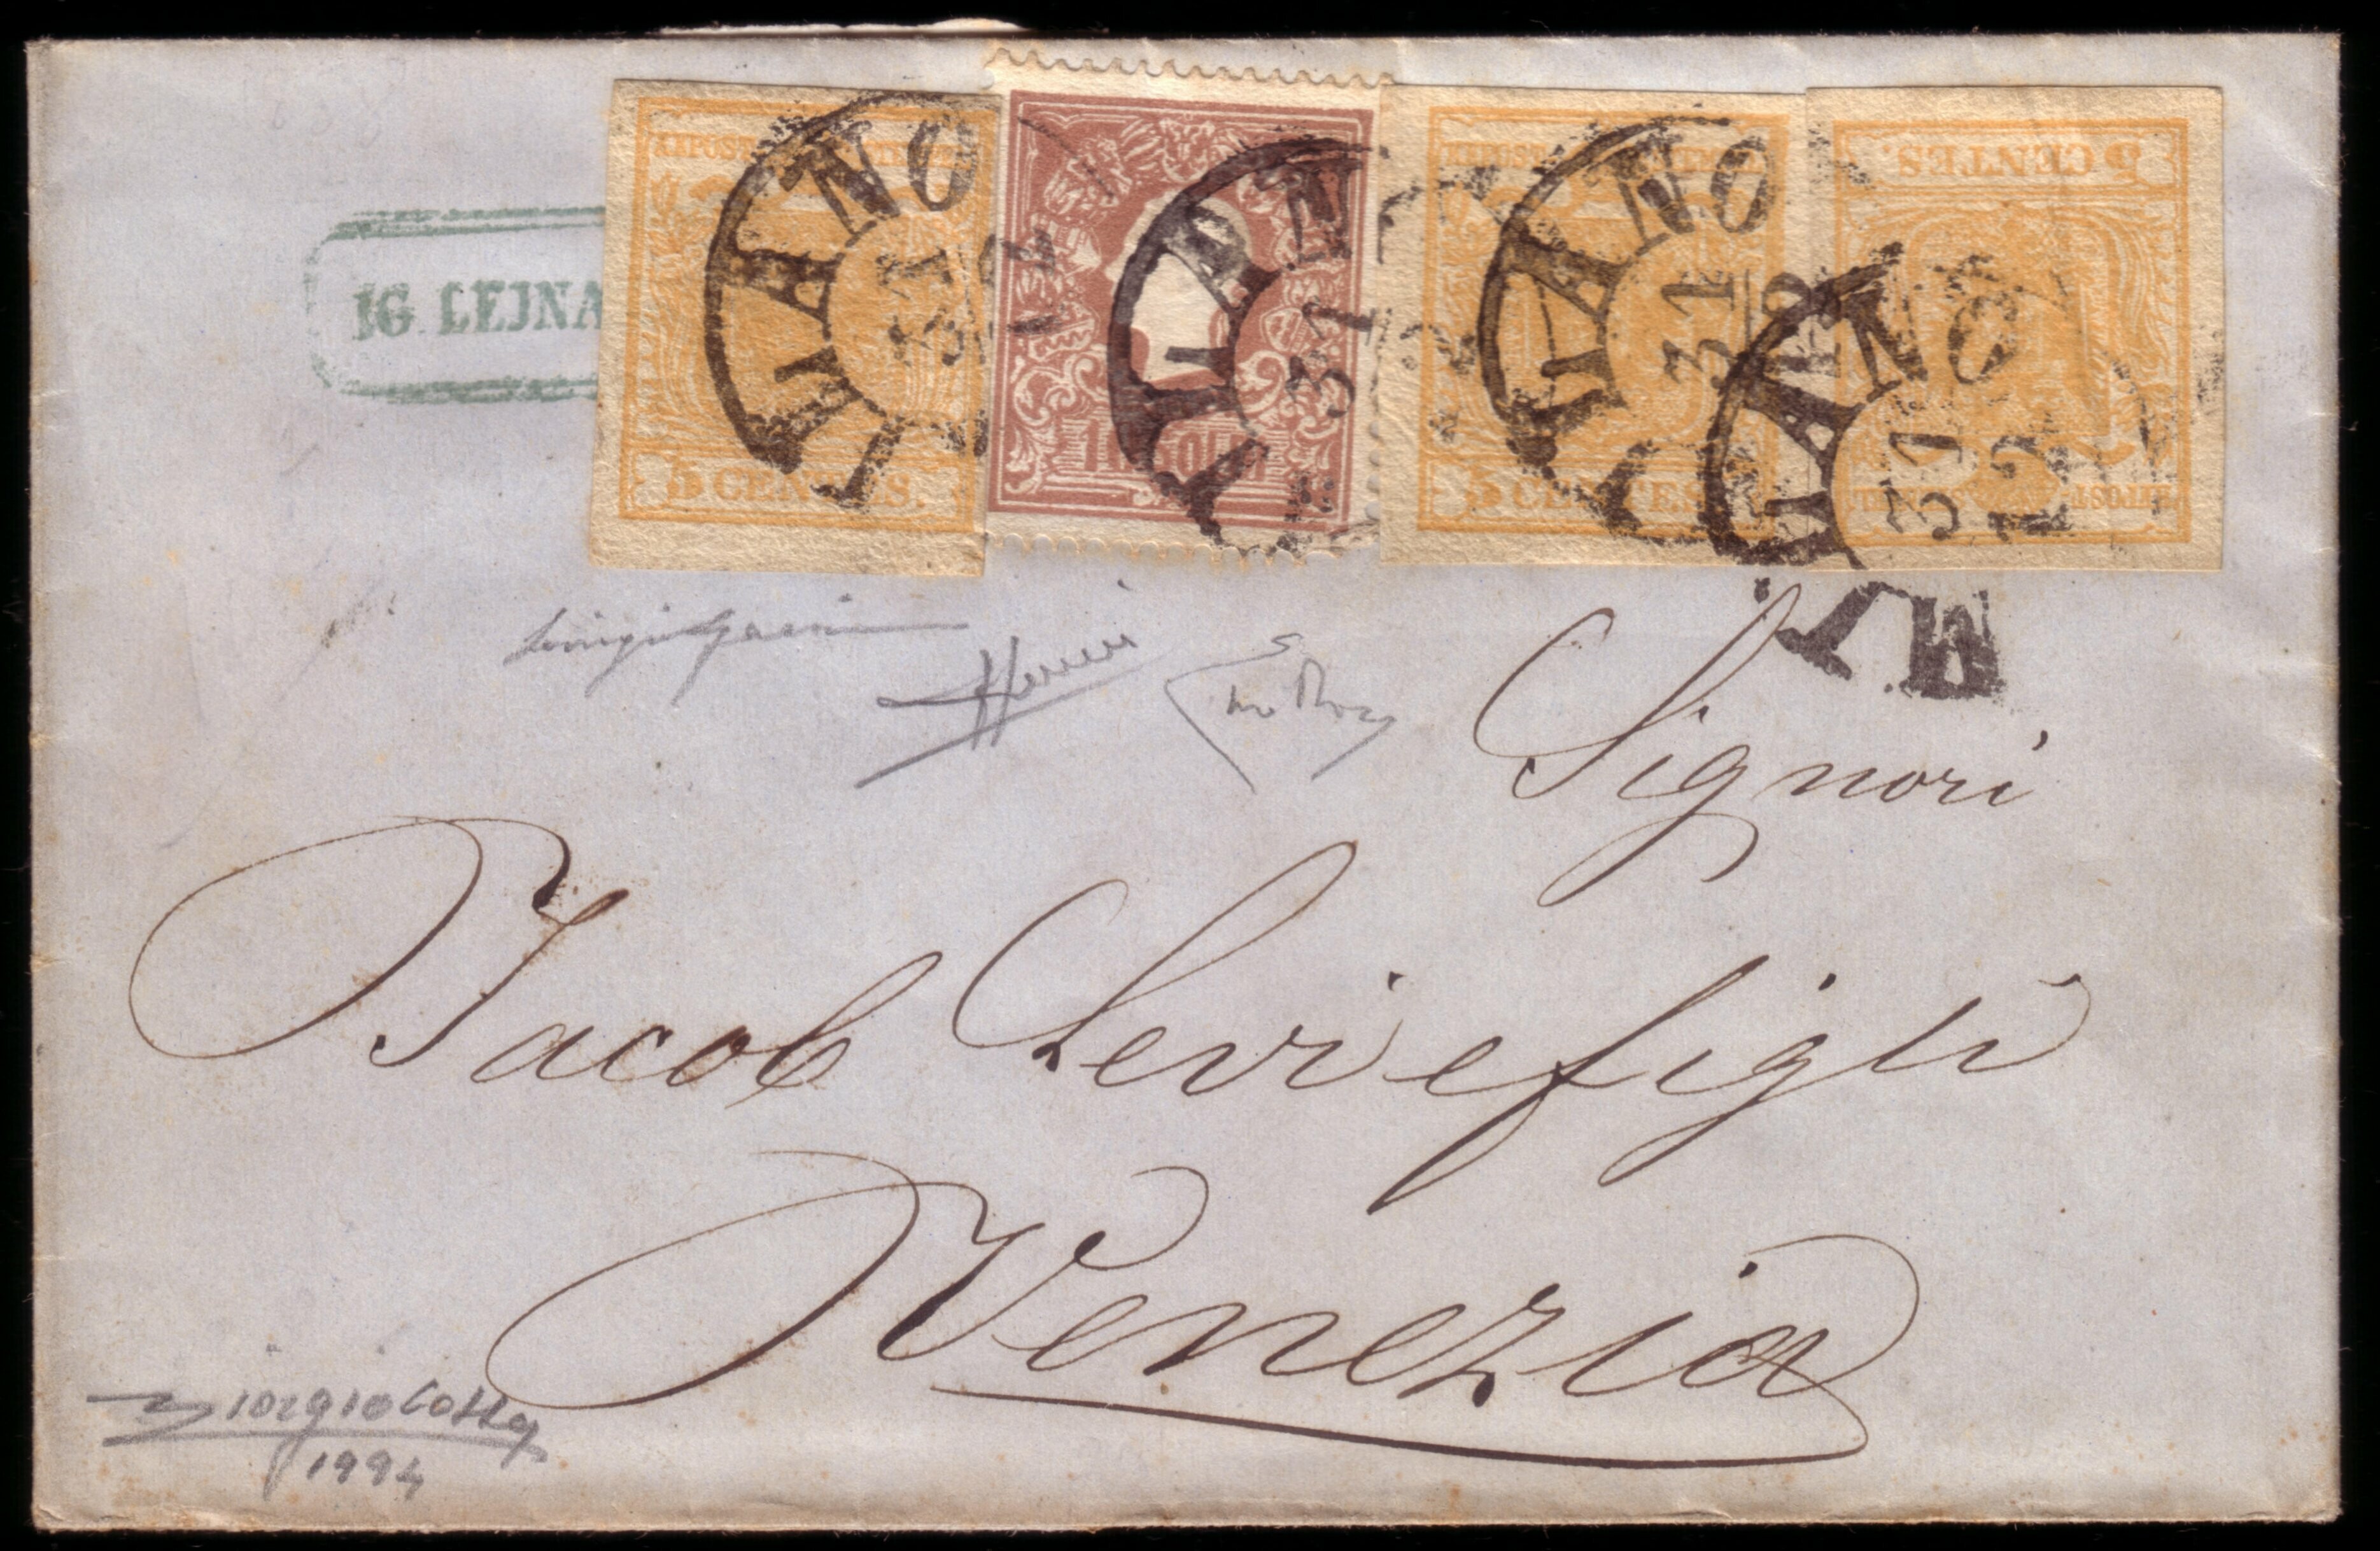 IG. LEJNA
5 CENTES.
MILANO
31
12
10 SOLDI
MILANO
31
5 CENTES.
MILANO
31
12
5 CENTES.
MILANO
31
12
Signori
Jacob Levi e figli
Venezia
Giorgio Colla
1994